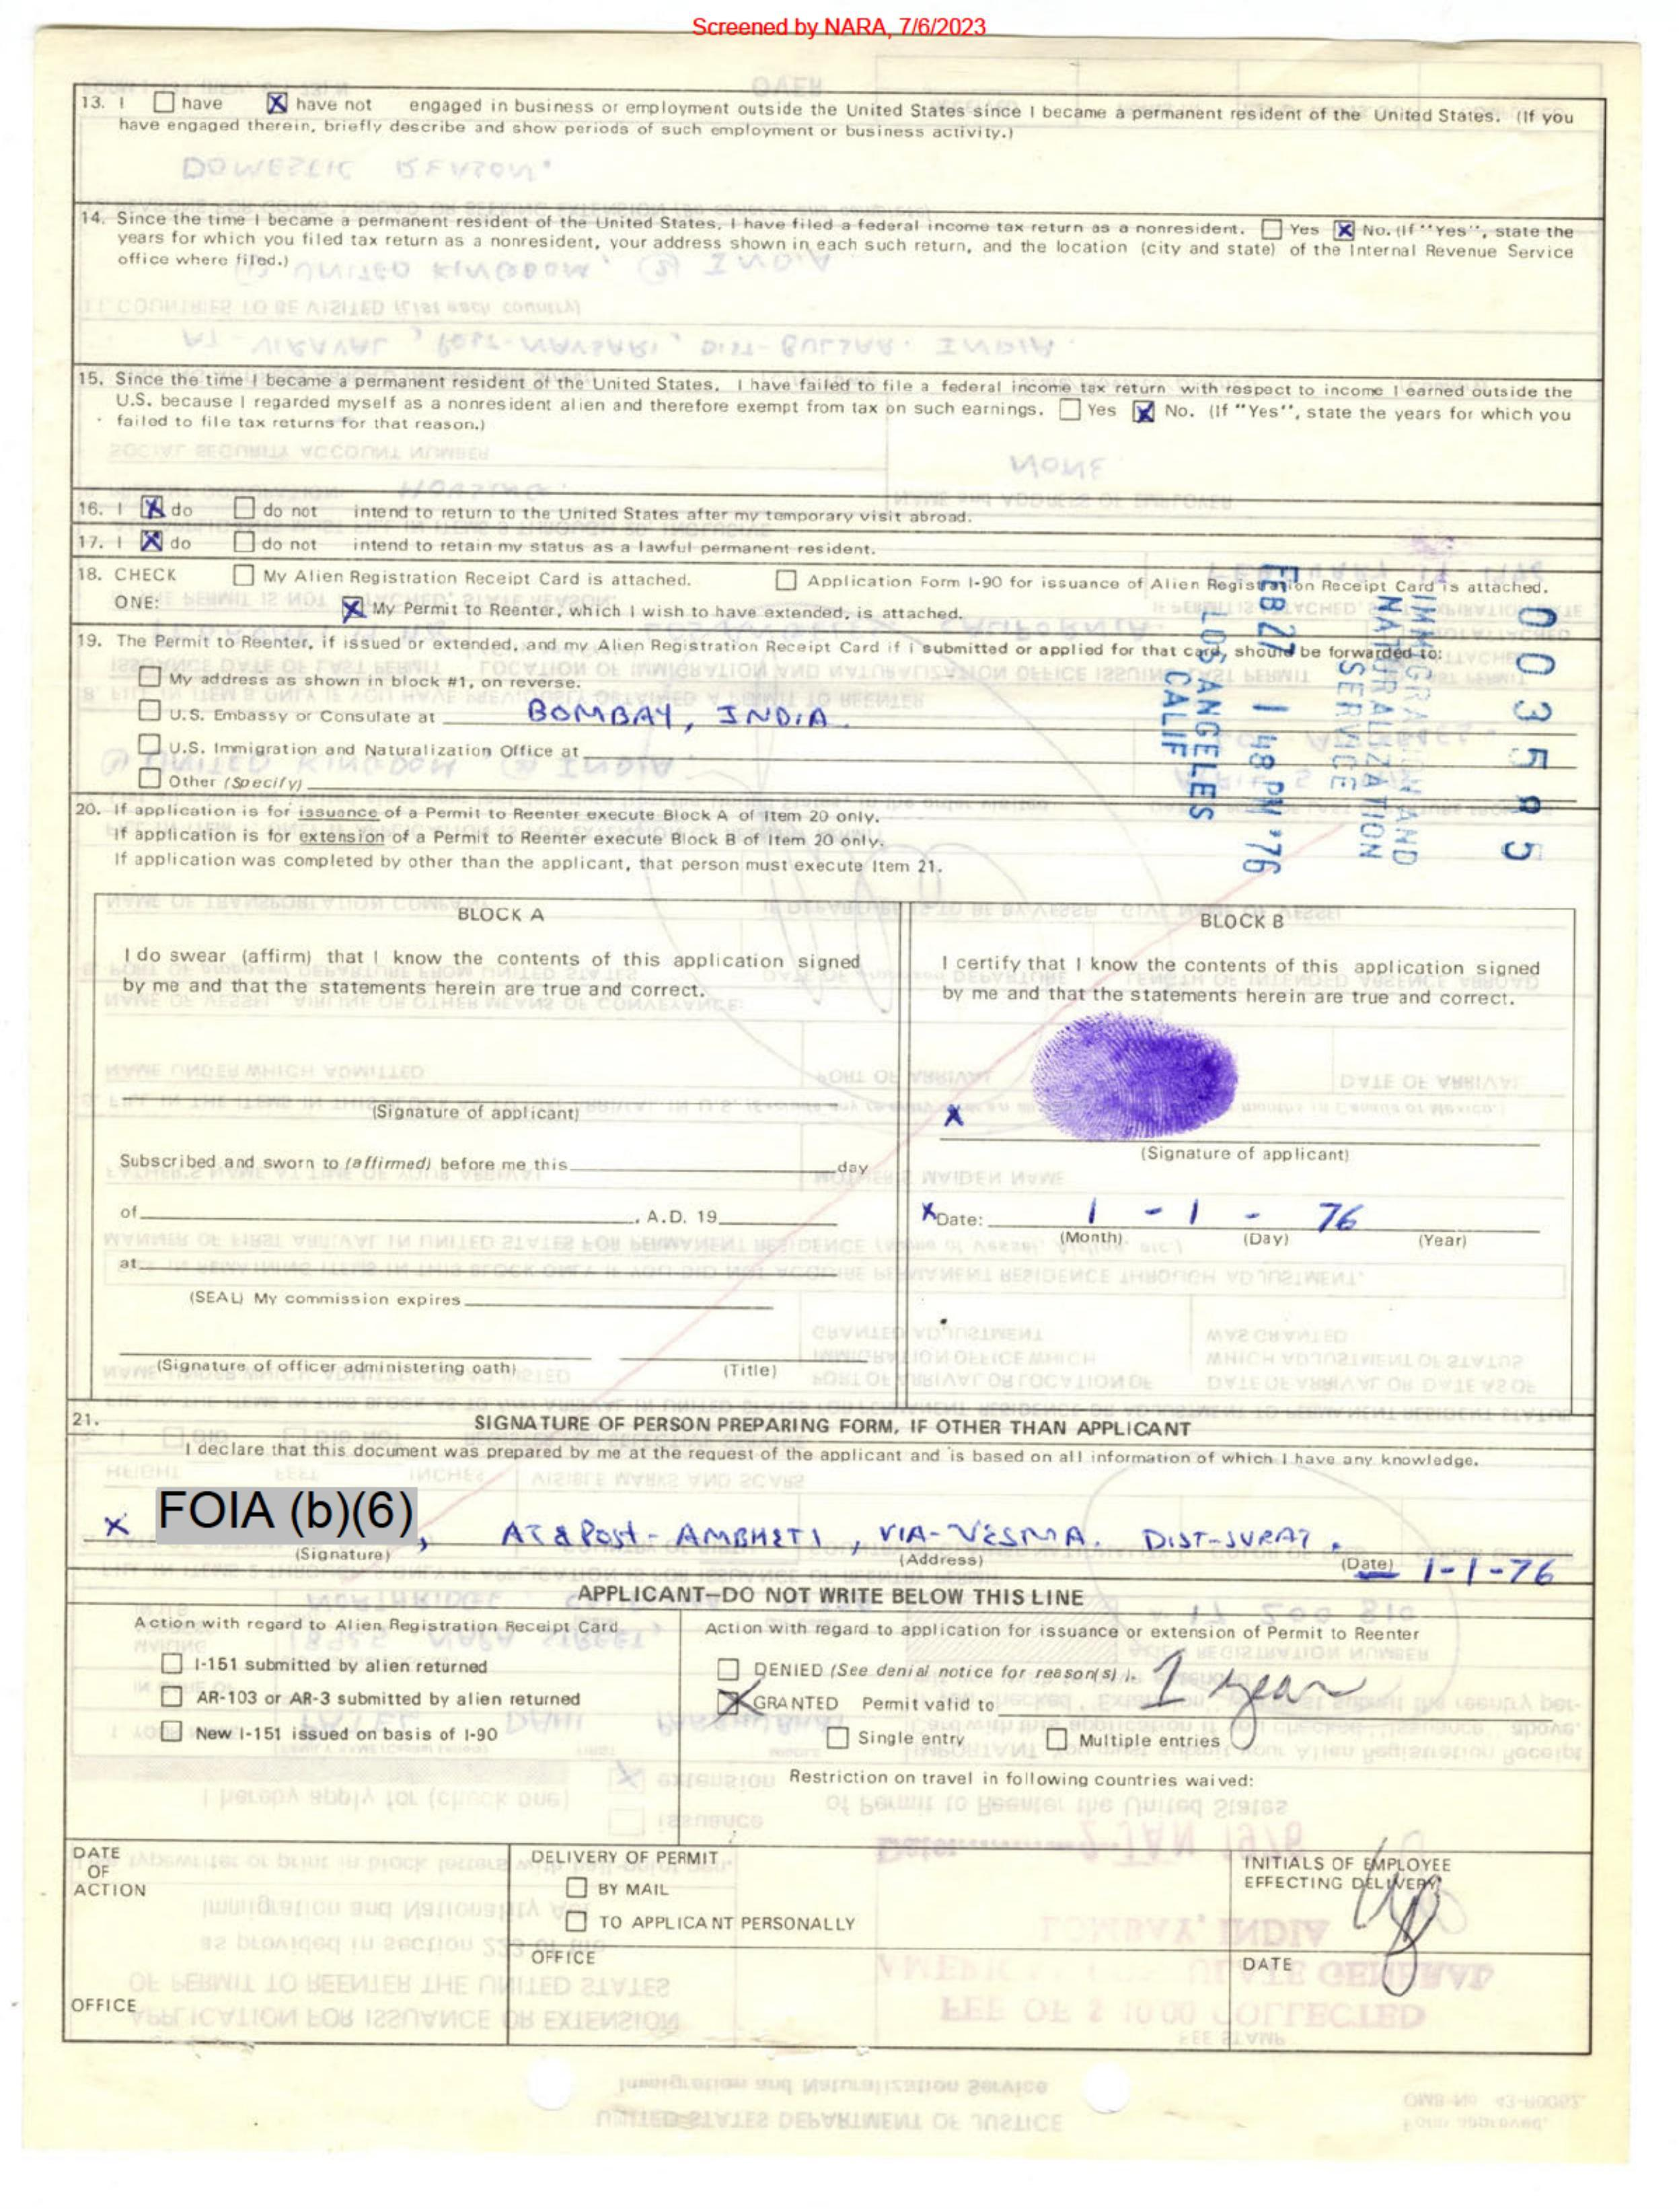 Screened by NARA, 7/6/2023
13. I ☐ have ☒ have not engaged in business or employment outside the United States since I became a permanent resident of the United States. (If you
have engaged therein, briefly describe and show periods of such employment or business activity.)
14. Since the time I became a permanent resident of the United States, I have filed a federal income tax return as a nonresident. ☐ Yes ☒ No. (If "Yes", state the
years for which you filed tax return as a nonresident, your address shown in each such return, and the location (city and state) of the Internal Revenue Service
office where filed.)
15. Since the time I became a permanent resident of the United States. I have failed to file a federal income tax return with respect to income I earned outside the
U.S. because I regarded myself as a nonresident alien and therefore exempt from tax on such earnings. ☐ Yes ☒ No. (If "Yes", state the years for which you
failed to file tax returns for that reason.)
16. I ☒ do ☐ do not intend to return to the United States after my temporary visit abroad.
17. I ☒ do ☐ do not intend to retain my status as a lawful permanent resident.
18. CHECK ☐ My Alien Registration Receipt Card is attached. ☐ Application Form I-90 for issuance of Alien Registration Receipt Card is attached.
ONE: ☒ My Permit to Reenter, which I wish to have extended, is attached.
19. The Permit to Reenter, if issued or extended, and my Alien Registration Receipt Card if I submitted or applied for that card, should be forwarded to:
☐ My address as shown in block #1, on reverse.
☐ U.S. Embassy or Consulate at BOMBAY, INDIA.
☐ U.S. Immigration and Naturalization Office at
☐ Other (Specify)
0035585
IMMIGRATION AND
NATURALIZATION
SERVICE
FEB 27 1 48 PM '76
LOS ANGELES
CALIF
20. If application is for issuance of a Permit to Reenter execute Block A of Item 20 only.
If application is for extension of a Permit to Reenter execute Block B of Item 20 only.
If application was completed by other than the applicant, that person must execute Item 21.
BLOCK A
I do swear (affirm) that I know the contents of this application signed
by me and that the statements herein are true and correct.
(Signature of applicant)
Subscribed and sworn to (affirmed) before me this day
of , A.D. 19
at
(SEAL) My commission expires
(Signature of officer administering oath) (Title)
BLOCK B
I certify that I know the contents of this application signed
by me and that the statements herein are true and correct.
X
(Signature of applicant)
X Date: 1 - 1 - 76
(Month) (Day) (Year)
21. SIGNATURE OF PERSON PREPARING FORM, IF OTHER THAN APPLICANT
I declare that this document was prepared by me at the request of the applicant and is based on all information of which I have any knowledge.
X FOIA (b)(6), AT & POST - AMBHETI, VIA-VESMA. DIST-SURAT. 1-1-76
(Signature) (Address) (Date)
APPLICANT—DO NOT WRITE BELOW THIS LINE
Action with regard to Alien Registration Receipt Card
☐ I-151 submitted by alien returned
☐ AR-103 or AR-3 submitted by alien returned
☐ New I-151 issued on basis of I-90
Action with regard to application for issuance or extension of Permit to Reenter
☐ DENIED (See denial notice for reason(s).)
☒ GRANTED Permit valid to 1 year
☐ Single entry ☐ Multiple entries
Restriction on travel in following countries waived:
DATE
OF
ACTION
OFFICE
DELIVERY OF PERMIT
☐ BY MAIL
☐ TO APPLICANT PERSONALLY
OFFICE
INITIALS OF EMPLOYEE
EFFECTING DELIVERY
DATE